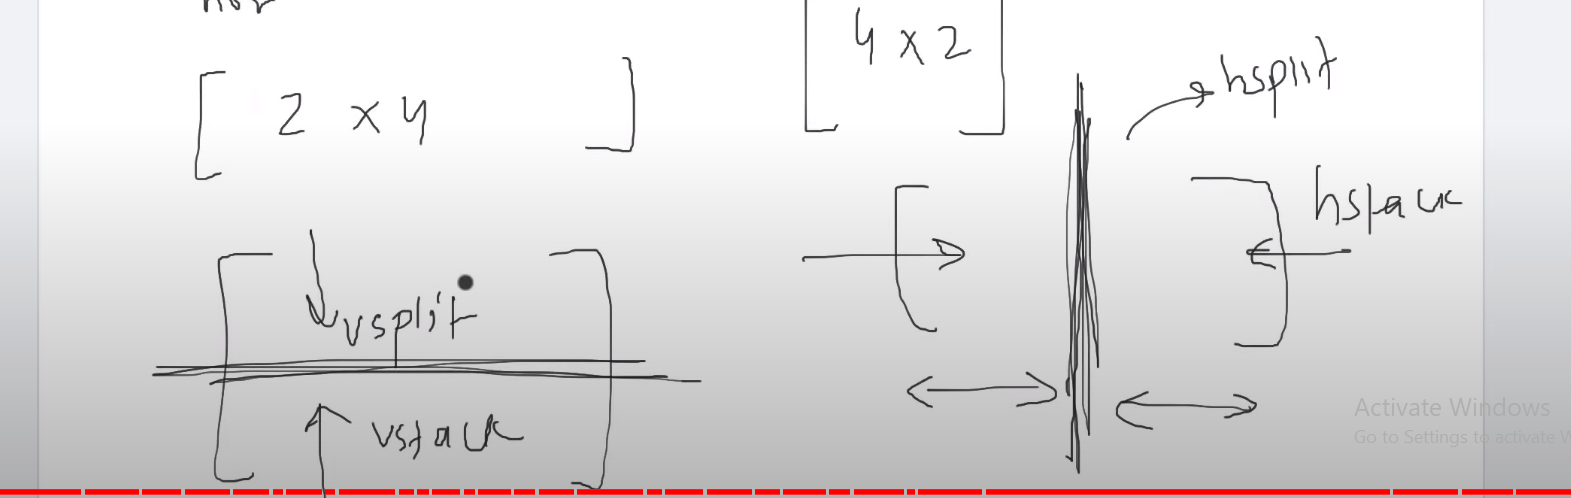 2 x 4
4 x 2
hsplit
hstack
vsplit
vstack
Activate Windows
Go to Settings to activate W